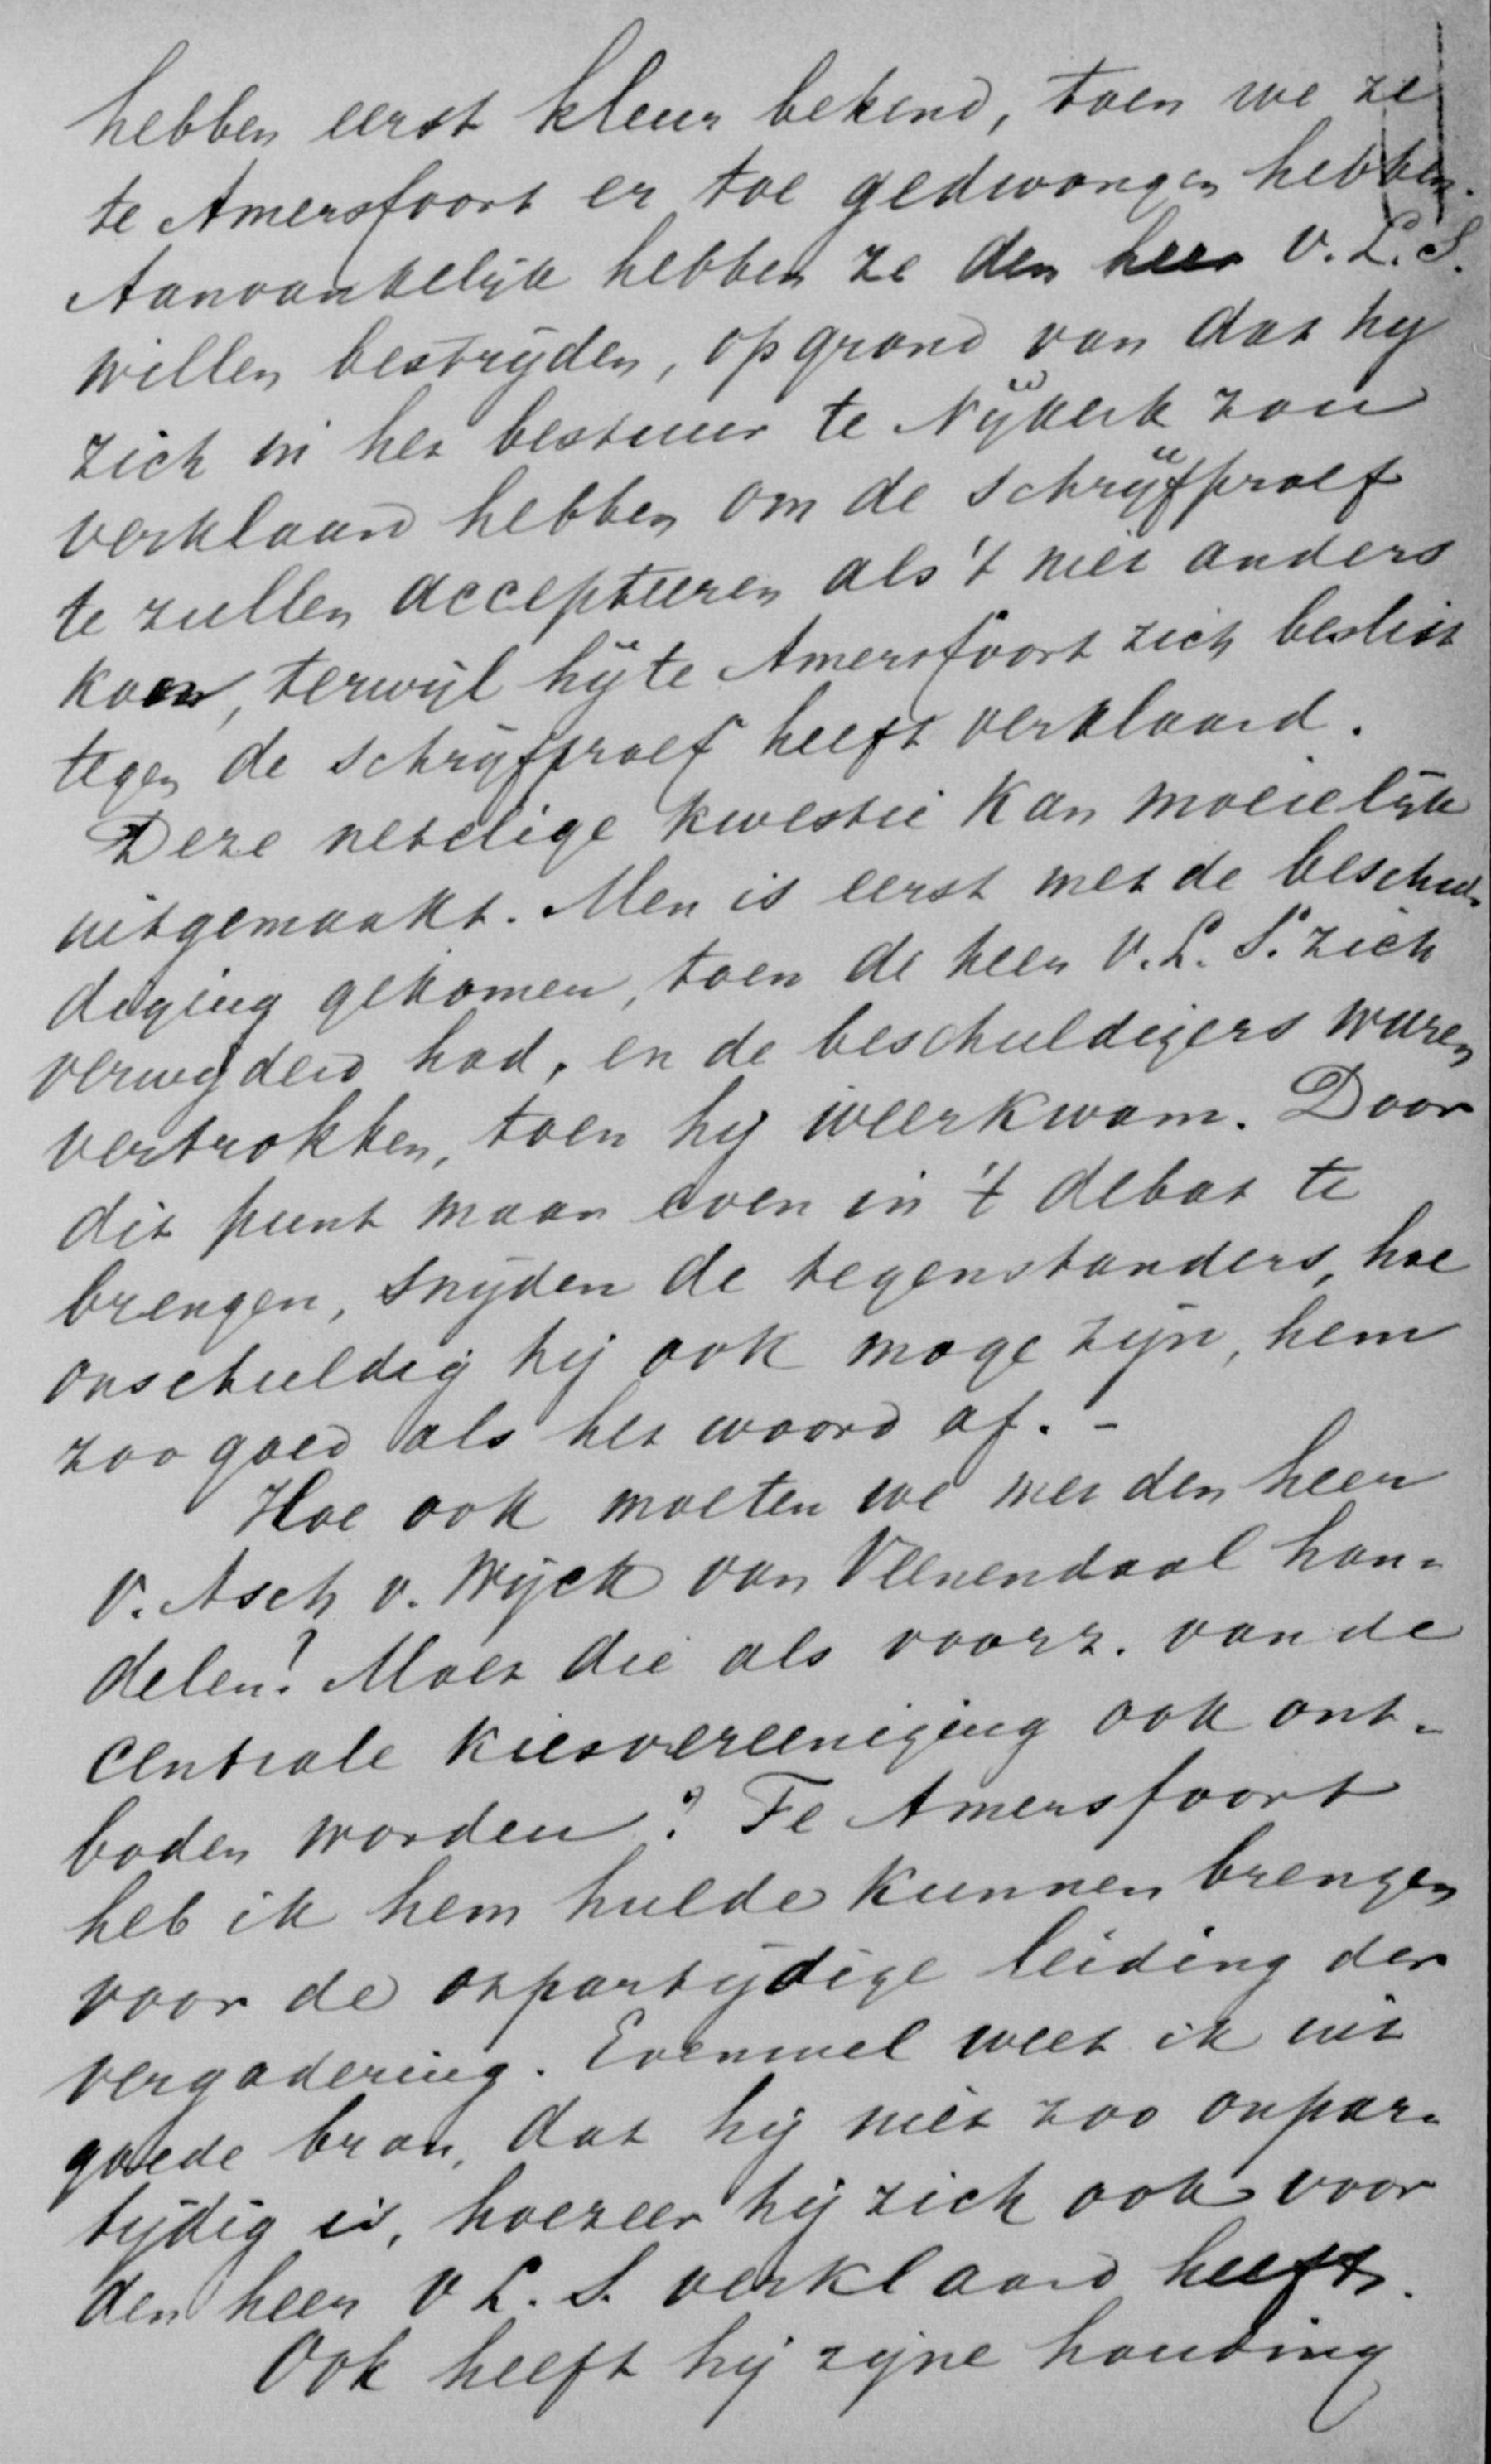 hebben eerst kleur bekend, toen we ze
te Amersfoort er toe gedwongen hebben.
Aanvankelijk hebben ze den heer V. L. S.
willen bestrijden, op grond van dat hij
zich in het bestuur te Nijkerk zou
verklaard hebben om de schrijfproef
te zullen accepteeren als 't niet anders
kon, terwijl hij te Amersfoort zich beslist
tegen de schrijfproef heeft verklaard.
Deze netelige kwestie kan moeielijk
uitgemaakt. Men is eerst met de beschul-
diging gekomen, toen de heer V. L. S. zich
verwijderd had, en de beschuldigers waren
vertrokken, toen hij weerkwam. Door
dit punt maar even in 't debat te
brengen, snijden de tegenstanders, hoe
onschuldig hij ook moge zijn, hem
zoo goed als het woord af. -
Hoe ook moeten we met den heer
V. Asch v. Wijck van Veenendaal han-
delen? Moet die als voorz. van de
centrale kiesvereeniging ook ont-
boden worden? Te Amersfoort
heb ik hem hulde kunnen brengen
voor de onpartijdige leiding der
vergadering. Evenwel weet ik uit
goede bron, dat hij niet zoo onpar-
tijdig is, hoezeer hij zich ook voor
den heer V L. S. verklaard heeft.
Ook heeft hij zijne houding